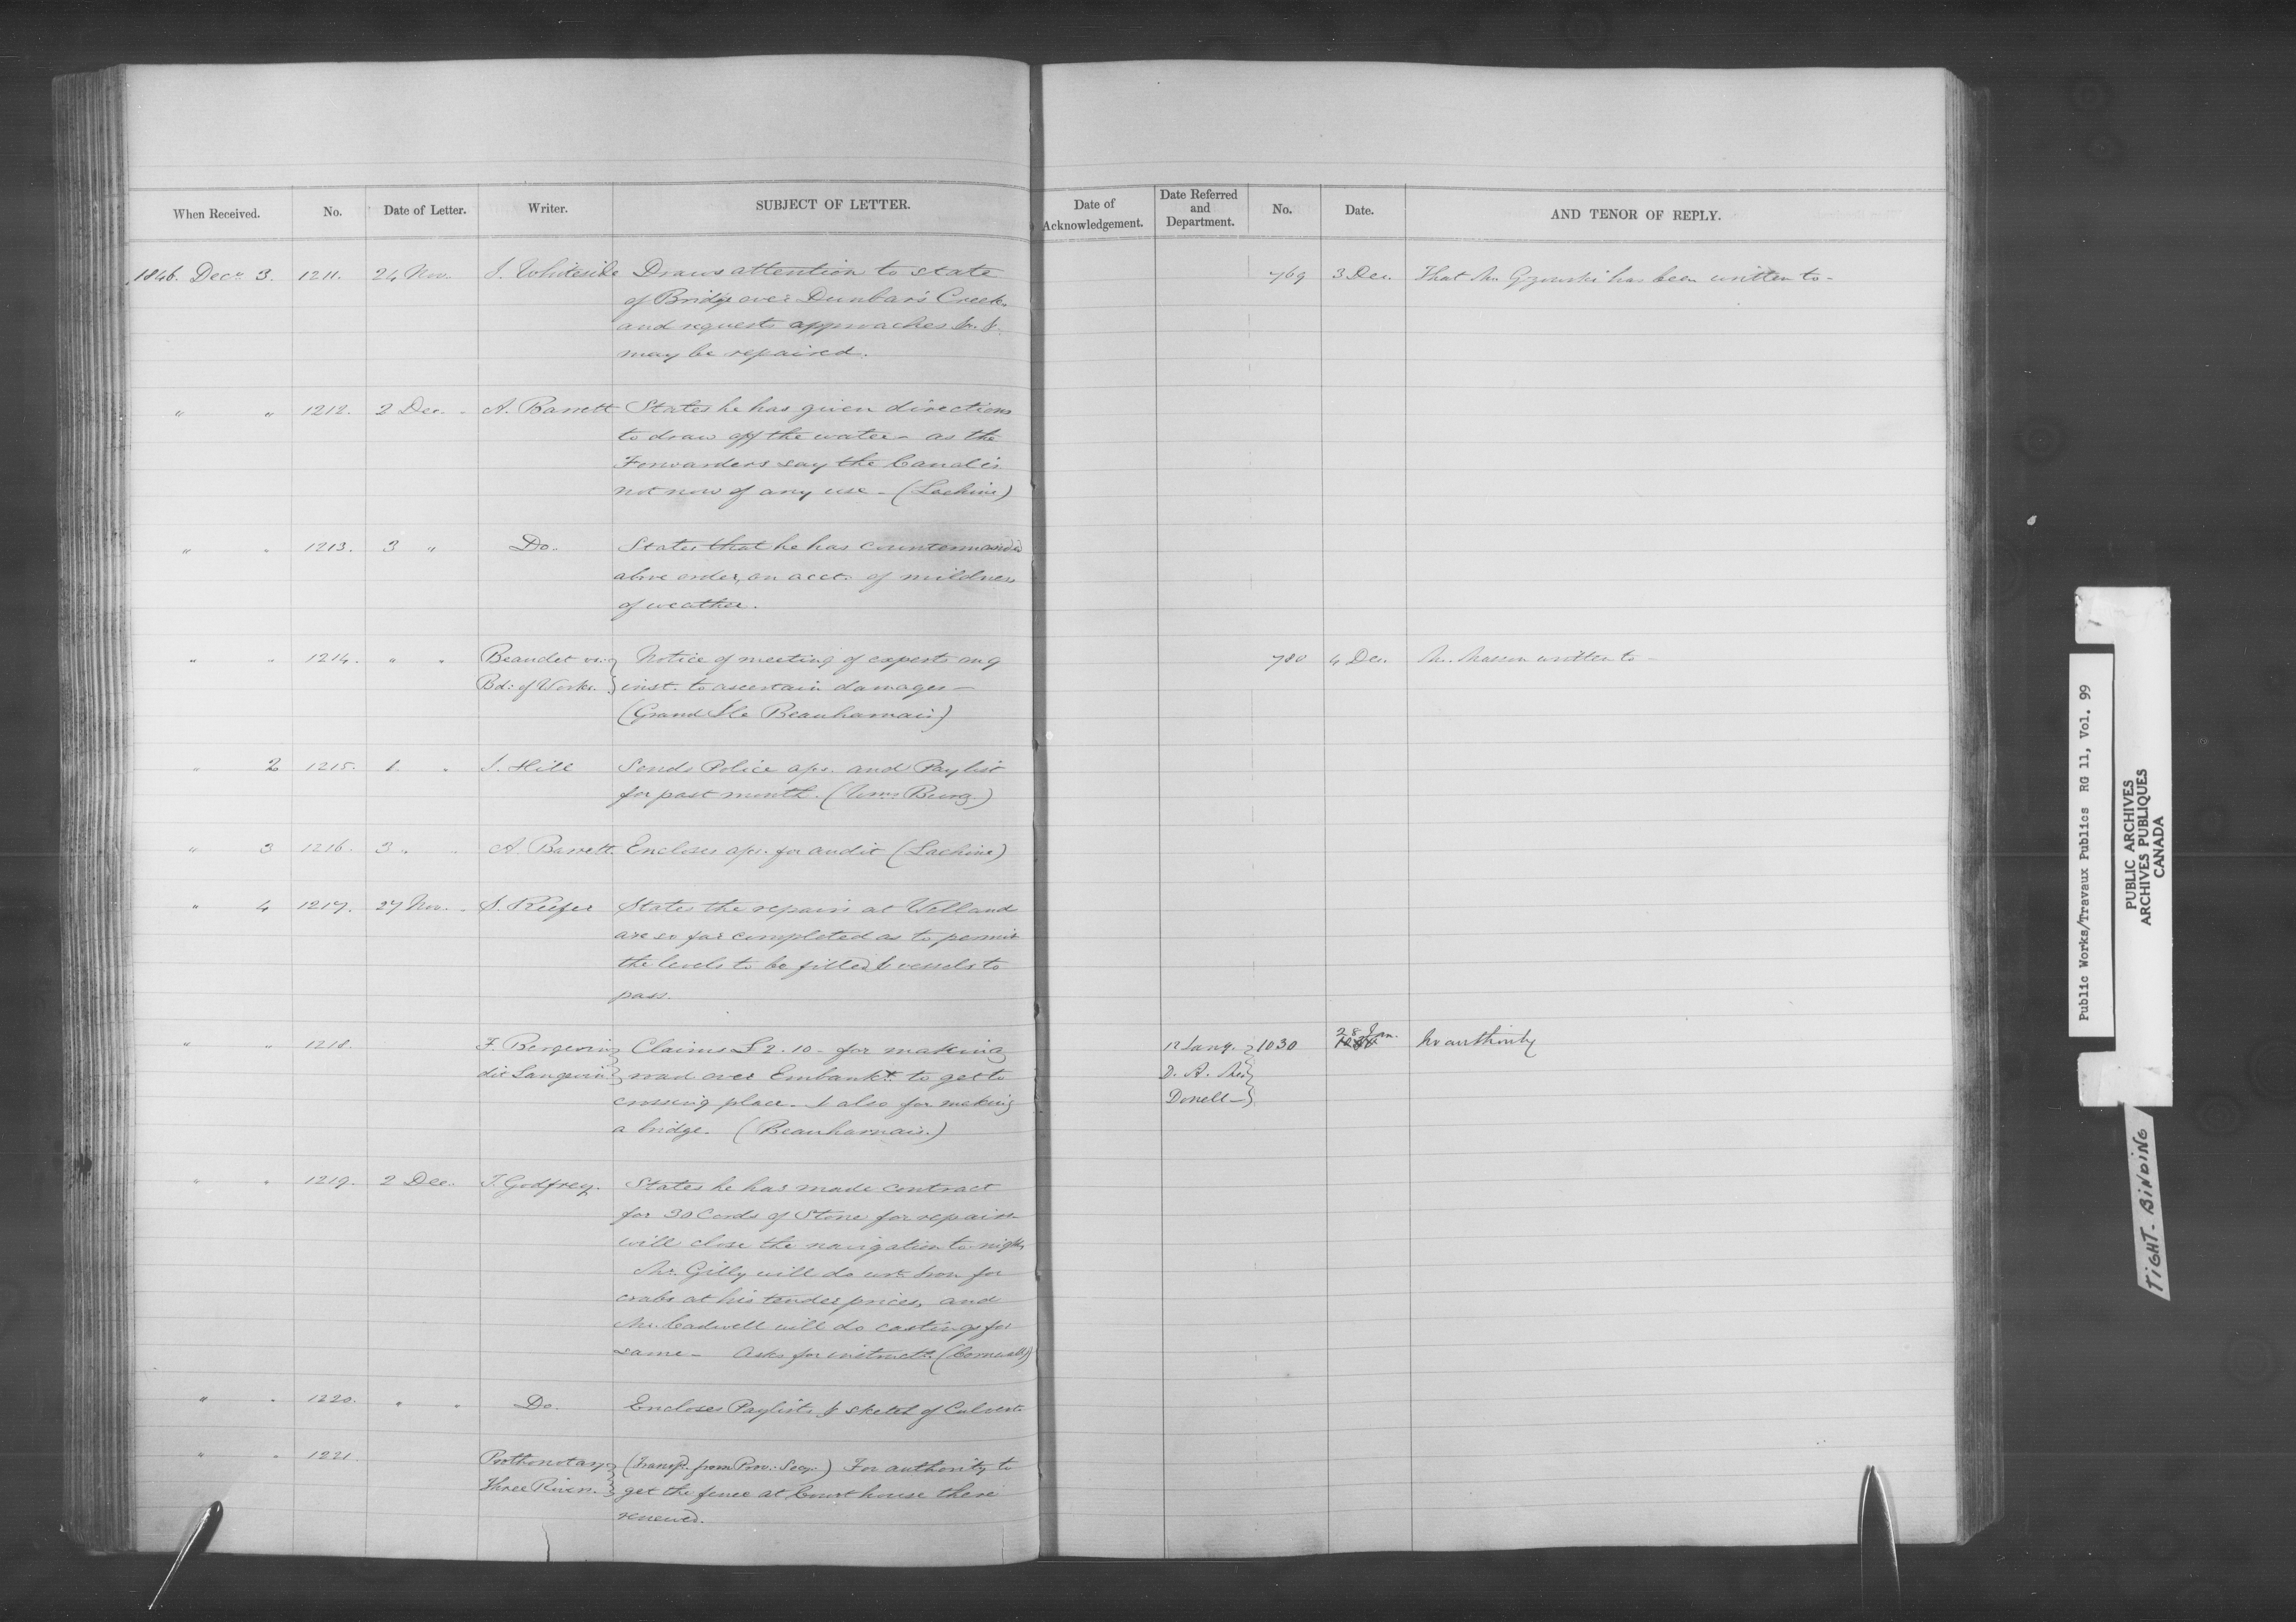 When Received. No. Date of Letter. Writer. SUBJECT OF LETTER.
Date of Acknowledgement. Date Referred and Department. No. Date. AND TENOR OF REPLY.
1846. Decr 3. 1211. 24 Nov. J. Whiteside Draws attention to state
of Bridge over Dunbar's Creek
and requests approaches &c. &
may be repaired.
769 3 Dec. That Mr. Gzowski has been written to -
" " 1212. 2 Dec. - A. Barrett States he has given directions
to draw off the water - as the
Forwarders say the Canal is
not now of any use - (Lachine)
" " 1213. 3 " Do. States that he has countermanded
above order, on acct. of mildness
of weather.
" " 1214. " " Beaudet vs.
Bd: of Works.
Notice of meeting of experts on 9
inst. to ascertain damages -
(Grand Ile Beauharnais)
780 4 Dec. Mr. Masson written to -
" 2 1215. 1. " J. Hill Sends Police aps. and Paylist
for past month. (Wms. Burg.)
" 3 1216. 3 " " A. Barrett. Encloses aps. for audit (Lachine)
" 4 1217. 27 Nov. - S. Keefer States the repairs at Welland
are so far completed as to permit
the levels to be filled & vessels to
pass.
" " 1218. F. Bergevin
dit Langevin
Claims £2.10 - for making
road over Embankt. to get to
crossing place - & also for making
a bridge. (Beauharnais.)
12 Jany.
D. A. Mc
Donell -
1030 28 Jan. No authority
" " 1219. 2 Dec. J. Godfrey. States he has made contract
for 30 Cords of Stone for repairs -
will close the navigation to-night
Mr. Gilly will do wrt. Iron for
crabs at his tender prices, and
Mr. Cadwell will do castings for
same - Asks for instructs. (Cornwall)
" " 1220. " " Do. Encloses Paylists & sketch of Culvert
" " 1221. Prothonotary
Three Rivers.
(Transfd. from Prov: Secy.) For authority to
get the fence at Court house there
renewed.
Public Works/Travaux Publics RG 11, Vol. 99
PUBLIC ARCHIVES
ARCHIVES PUBLIQUES
CANADA
TIGHT BINDING